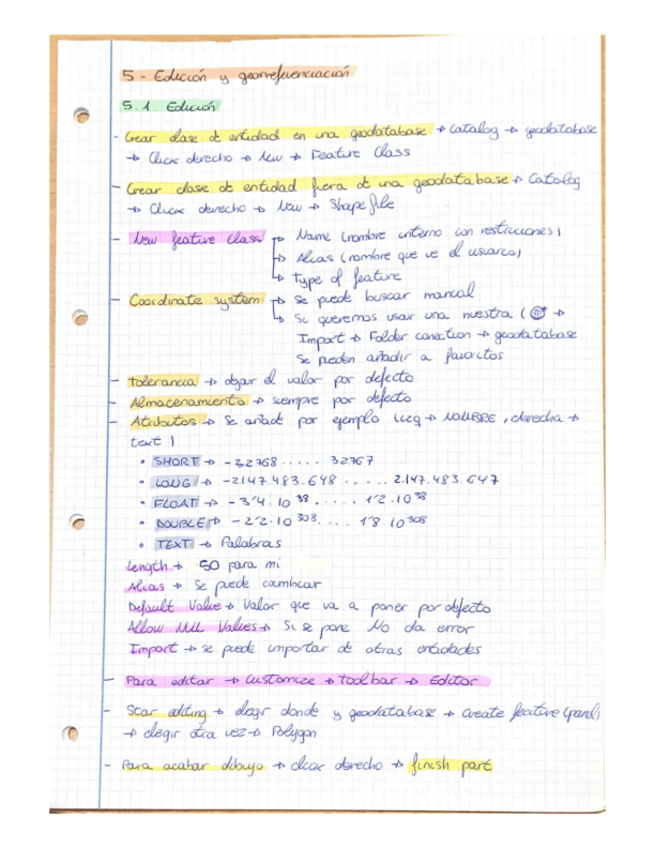 5 - Edición y georreferenciación
5.1. Edición
- Crear clase de entidad en una geodatabase → Catalog → geodatabase
→ Click derecho → New → Feature Class
- Crear clase de entidad fuera de una geodatabase → Catalog
→ Click derecho → New → Shapefile
- New feature class → Name (nombre interno con restricciones)
→ Alias (nombre que ve el usuario)
→ Type of feature
- Coordinate system → Se puede buscar manual
→ Si queremos usar una nuestra ( →
Import → Folder conection → geodatabase
Se pueden añadir a favoritos
- Tolerancia → dejar el valor por defecto
- Almacenamiento → siempre por defecto
- Atributos → Se añade por ejemplo (izq → NOMBRE, derecha →
text)
• SHORT → -32768 ..... 32767
• LONG → -2147.483.648 ..... 2.147.483.647
• FLOAT → -3'4.10^38 ..... 1'2.10^38
• DOUBLE → -2'2.10^308 .... 1'8.10^308
• TEXT → Palabras
Length → 50 para mi
Alias → Se puede cambiar
Default Value → Valor que va a poner por defecto
Allow NULL Values → Si se pone No da error
Import → se puede importar de otras entidades
- Para editar → Customize → toolbar → Editor
- Star editing → elegir donde y geodatabase → Create feature (panel)
→ elegir otra vez → Polygon
- Para acabar dibujo → click derecho → finish part